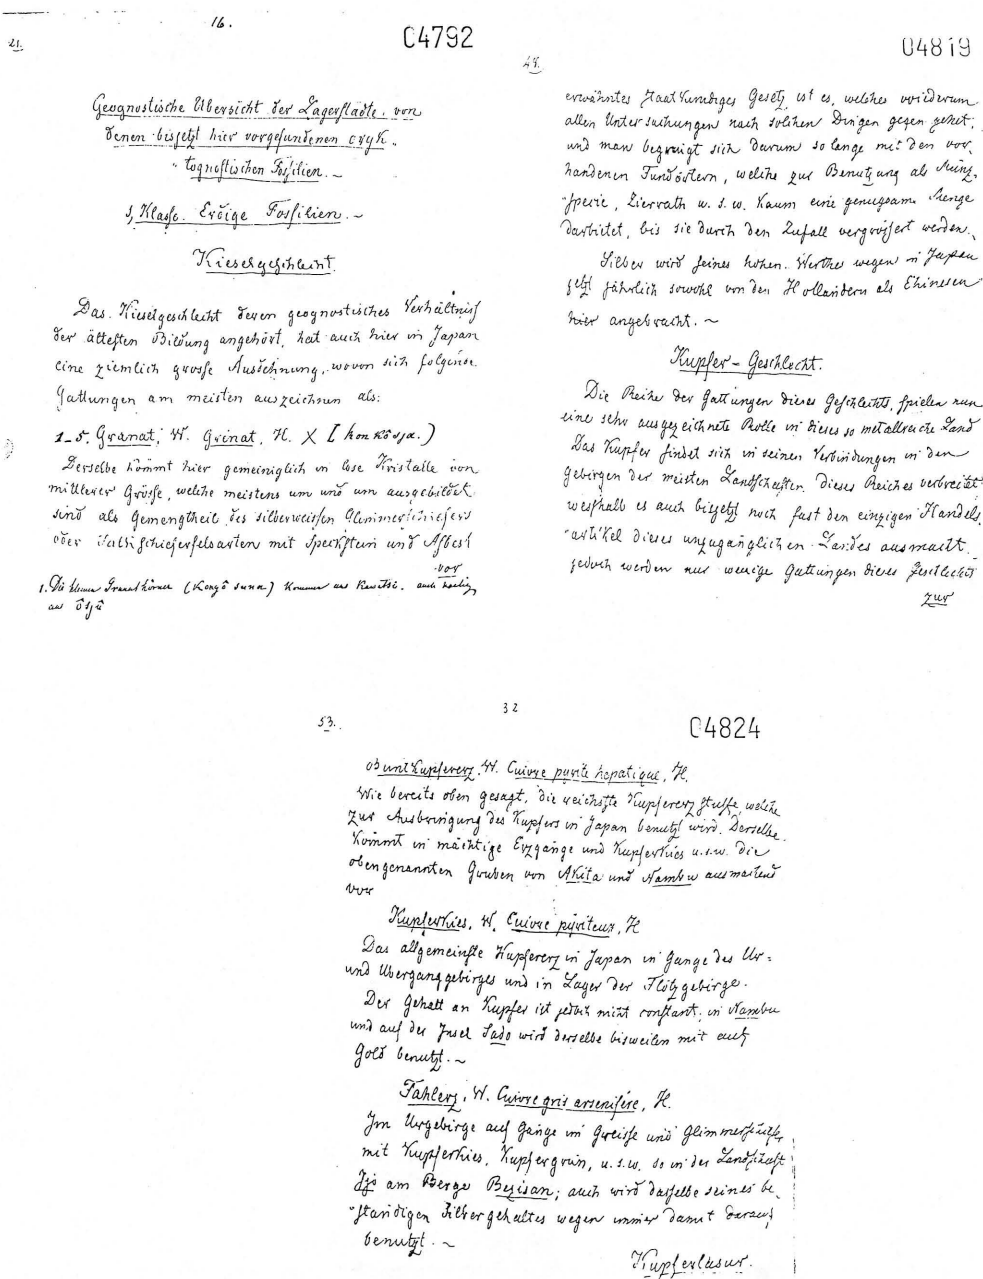 16.
04792
21.
Geognostische Übersicht der Lagerstädte, von
denen bisjetzt hier vorgefundenen oryk„
„tognostischen Fossilien. ~
1, Klasse. Erdige Fossilien. ~
Kieselgeschlecht.
Das Kieselgeschlecht deren geognostisches Verhältniss
der ältesten Bildung angehört, hat auch hier in Japan
eine ziemlich grosse Ausdehnung, wovon sich folgende
Gattungen am meisten auszeichnen als:
1-5. Granat, W. Grinat, H. X [konkôsja.)
Derselbe kömmt hier gemeiniglich in lose Kristalle von
mittlerer Grösse, welche meistens um und um ausgebildet
sind als Gemengtheil des silberweissen Glimmerschiefers
oder Talkschieferfelsarten mit Speckstein und Asbest
vor
1. Die kleinen Granatkörner (Kongô suna) kommen aus Kawatsi, auch häufig
aus Ôsjû
04819
48.
erwähntes Staatkundiges Gesetz ist es, welches wiederum
allen Untersuchungen nach solchen Dingen gegen gehet,
und man begnügt sich darum so lange mit den vor„
handenen Fundörtern, welche zur Benutzung als Münz„
„sperie, Zierrath u. s. w. kaum eine genugsame Menge
darbietet, bis sie durch den Zufall vergrössert werden.
Silber wird seines hohen Werthes wegen in Japan
jetzt jährlich sowohl von den Holländern als Chinesen
hier angebracht. ~
Kupfer-Geschlecht.
Die Reihe der Gattungen dieses Geschlechts, spielen nun
eine sehr ausgezeichnete Rolle in dieses so metallreiche Land
Das Kupfer findet sich in seinen Verbindungen in den
Gebirgen der meisten Landschaften dieses Reiches verbreitet
wesshalb es auch bisjetzt noch fast den einzigen Handels„
„artikel dieses unzugänglichen Landes ausmacht,
jedoch werden nur wenige Gattungen dieses Geschlechts
zur
32
53.
04824
Buntkupfererz, W. Cuivre pyrite hepatique, H.
Wie bereits oben gesagt, die reichste Kupfererz stuffe, welche
zur Ausbringung des Kupfers in Japan benutzt wird. Derselbe
kömmt in mächtige Erzgänge und Kupferkies u.s.w. die
obengenannten Gruben von Akita und Nambu ausmachend
vor
Kupferkies, W. Cuivre pyriteux, H
Das allgemeinste Kupfererz in Japan in Gange des Ur=
und Übergangsgebirges und in Lager der Flötzgebirge.
Der Gehalt an Kupfer ist jedoch nicht constant; in Nambu
und auf der Insel Sado wird derselbe bisweilen mit auf
Gold benutzt. ~
Fahlerz, W. Cuivre gris arsenifére, H.
Im Urgebirge auf Gange im Gneisse und Glimmerschiefer
mit Kupferkies, Kupfergrün, u. s. w. so in der Landschaft
Ijo am Berge Bezisan; auch wird dasselbe seines be„
„ständigen Silbergehaltes wegen immer damit darauf
benutzt. ~
Kupferlasur.